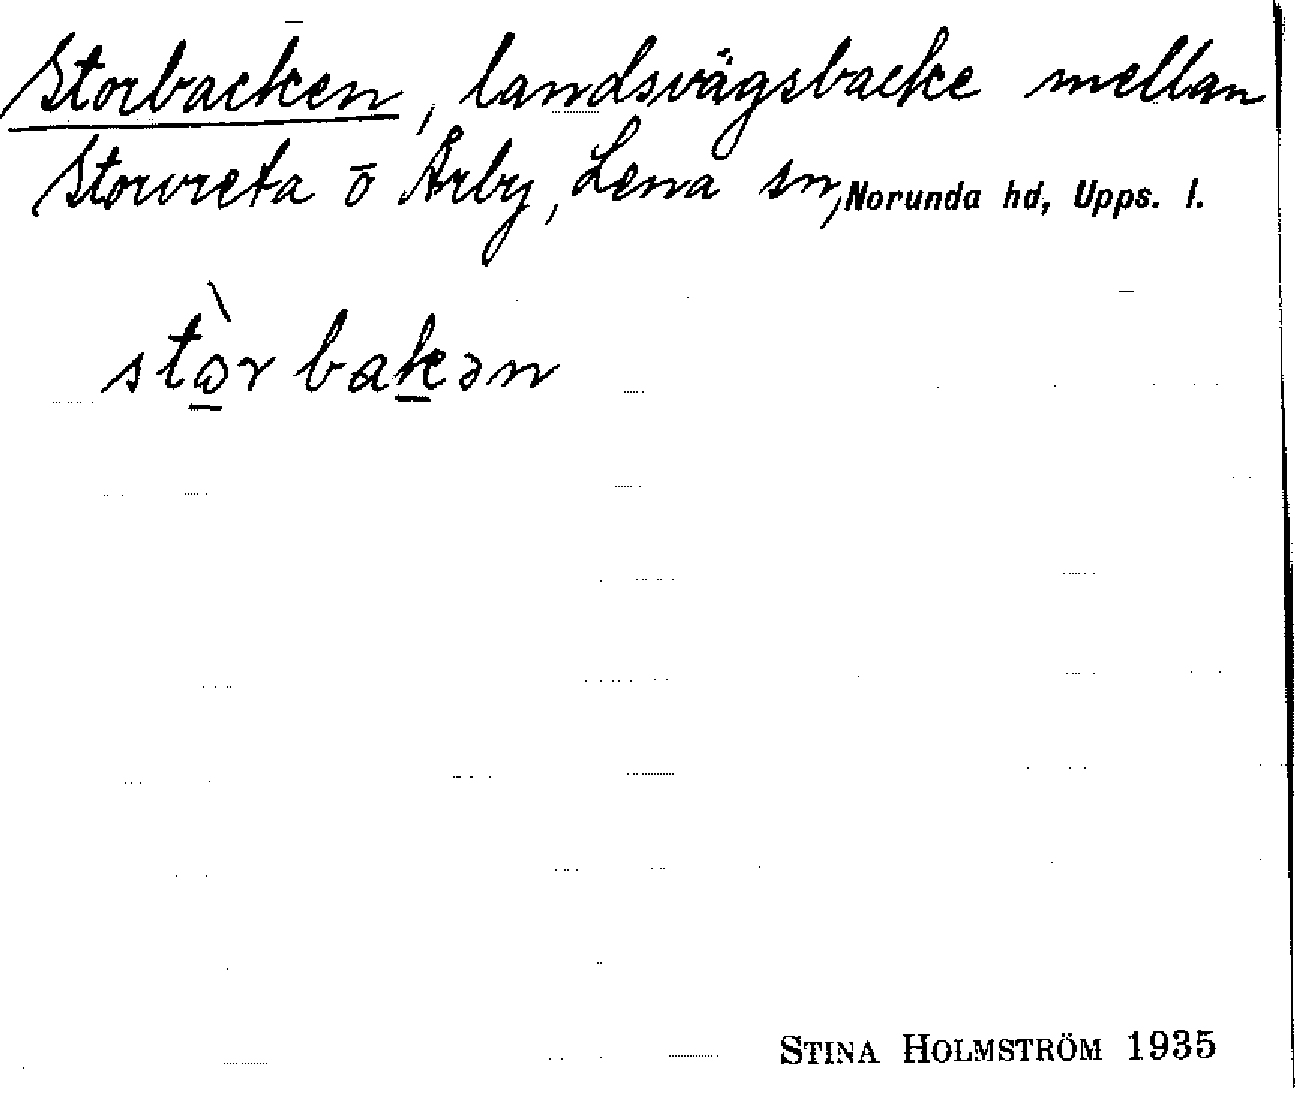 Storbacken, landsvägsbacke mellan
Storvreta o Årby, Lena sn, Norunda hd, Upps. l.
stòrbakən
STINA HOLMSTRÖM 1935